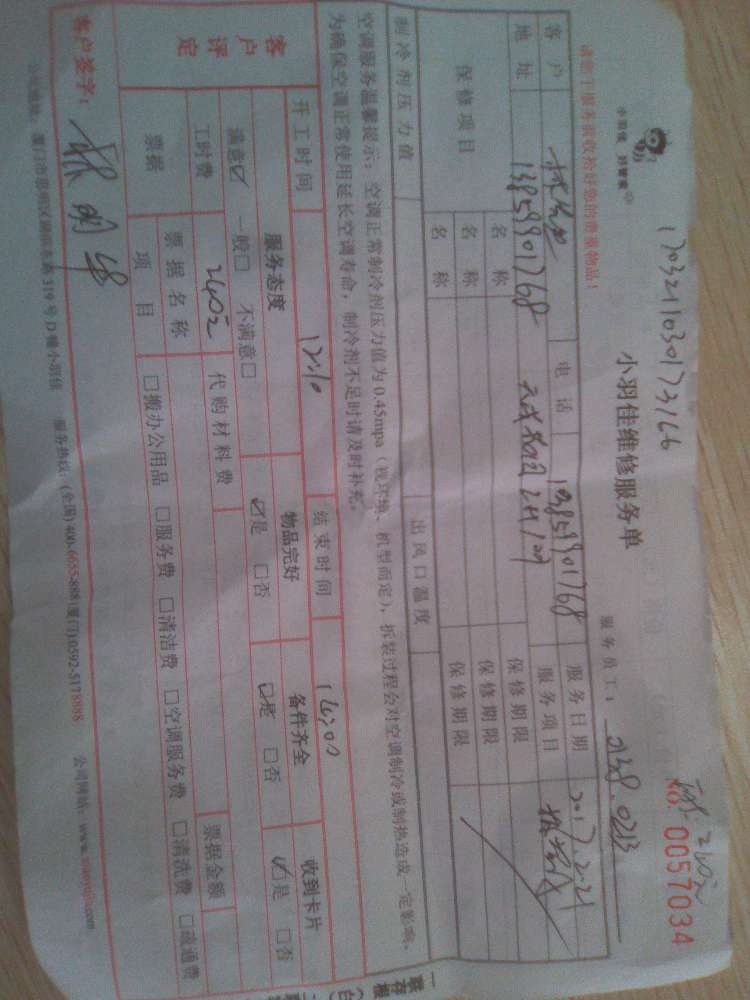 1703211030173166
小羽佳 好管家
小羽佳维修服务单
NO. 0057034
服务员工：
0213
请您于服务前收拾好您的贵重物品！
客户 电话 13859901768 服务日期 2017.2.21
地址 13859901768 服务项目
保修项目 名称 保修期限
名称 保修期限
名称 保修期限
制冷剂压力值 出风口温度
空调服务温馨提示：空调正常制冷剂压力值为0.45mpa（视环境、机型而定），拆装过程会对空调制冷或制热造成一定影响，
为确保空调正常使用延长空调寿命，制冷剂不足时请及时补充。
开工时间 12:10 结束时间 14:00
客户评定 服务态度 物品完好 备件齐全 收到卡片
满意☑ 一般□ 不满意□ ☑是 □否 ☑是 □否 ☑是 □否
工时费 240元 代购材料费
票据 票据名称 票据金额
项目 □搬办公用品 □服务费 □清洁费 □空调服务费 □清洗费 □疏通费
客户签字：
公司地址：厦门市思明区湖滨东路319号D幢小羽佳 服务热线：(全国)400-6655-888(厦门)0592-5178888 公司网站：www.xiaoyujia.com
一联存根